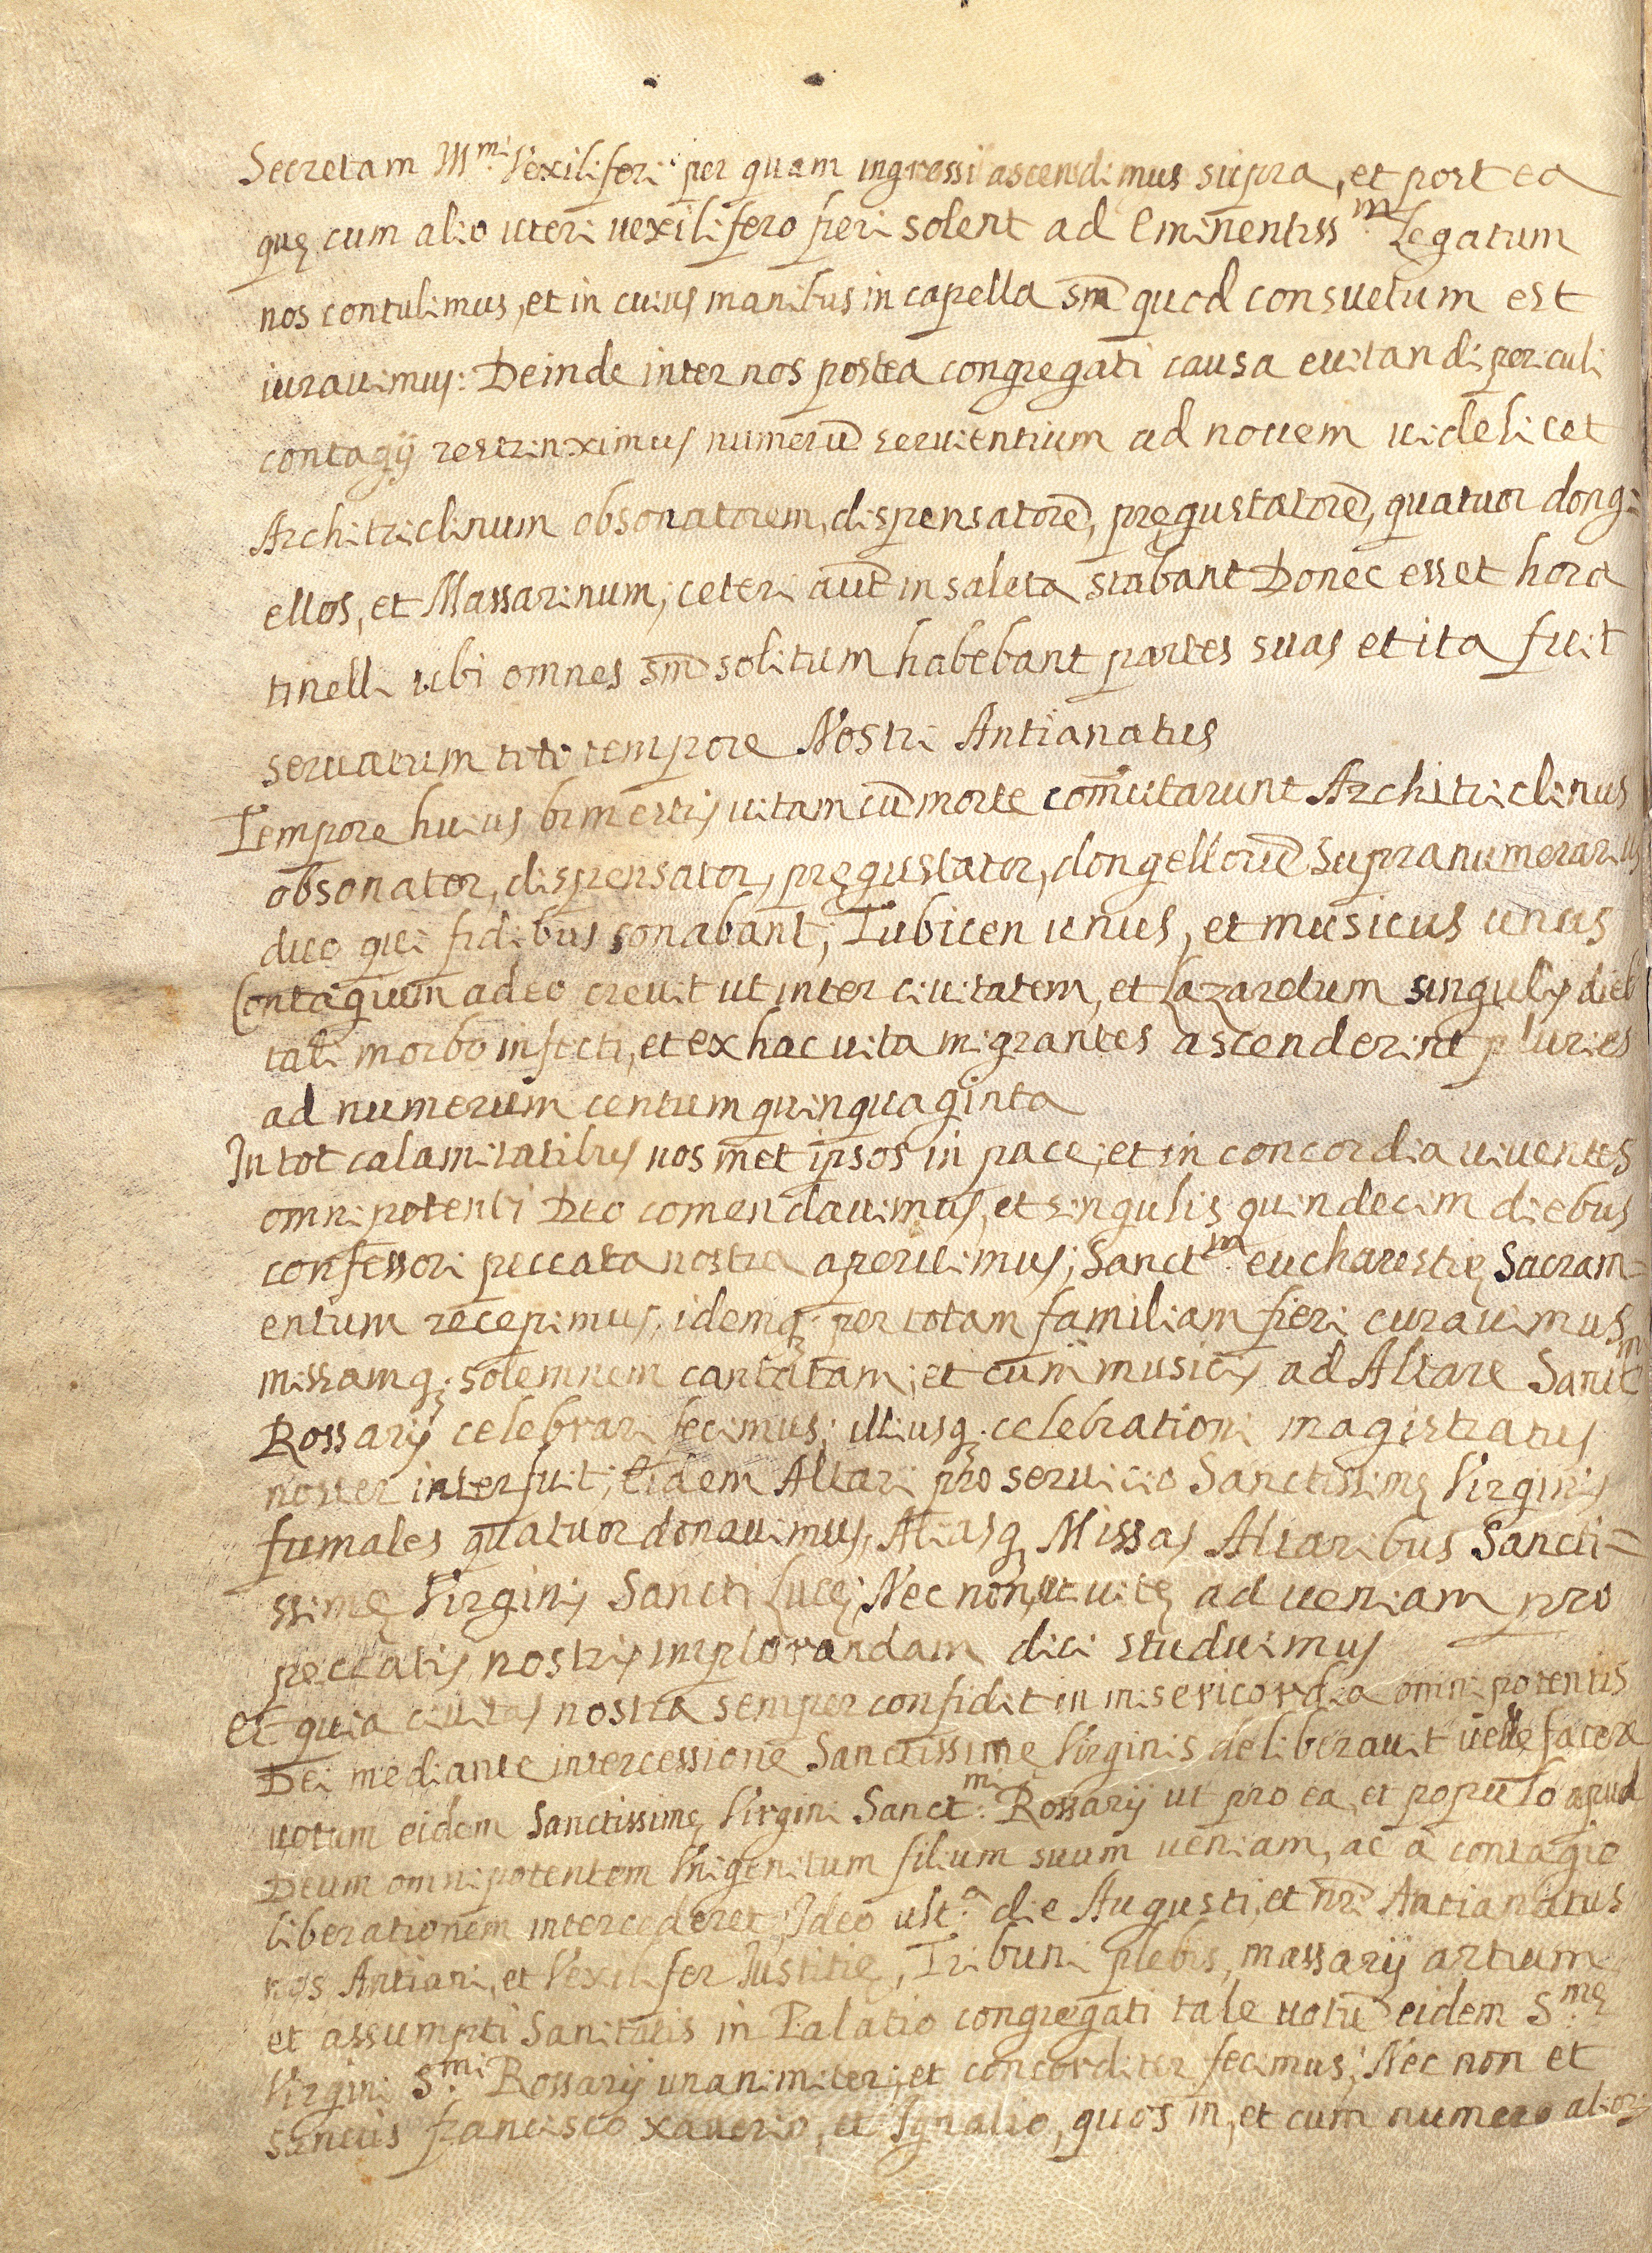 Secretam Ill.mi Vexiliferi per quam ingressi ascendimus supra, et postea
quę cum alio iteri uexilifero fieri solent ad Eminentiss.m Legatum
nos contulimus, et in cuius manibus in capella sm̄ quod consuetum est
iurauimus: Deinde inter nos postea congregati causa euitandi periculi
contagij restrinximus numerū seruientium ad nouem uidelicet
Architriclinum obsonatorem, dispensatorē, pręgustatorē, quatuor dong=
ellos, et Massarinum; ceteri autē in saleta stabant Donec esset hora
tinelli ubi omnes sm̄ solitum habebant partes suas et ita fuit
seruatum toto tempore Nostri Antianatus
Tempore huius bimestris uitam cū morte com̄utarunt Architriclinus
obsonator, dispensator, pręgustator, dongellorū supranumerarius
duo qui fidibus sonabant, Tubicen unus, et musicus unus
Contagium adeo creuit ut inter ciuitatem, et Lazaretum singulis dieb
tali morbo infecti, et ex hac uita migrantes ascenderint pluries
ad numerum centum quinquaginta
In tot calamitatibus nos met ipsos in pace, et in concordia uiuentes
omnipotenti Deo comendauimus, et singulis quindecim diebus
confessori peccata nostra aperuimus; Sanct.m eucharestię Sacram=
entum recepimus, idemq; per totam familiam fieri curauimus
missamq; solemnem cantatam, et cum musicis ad Altare Sanct.m
Rossarij celebrari fecimus; illiusq; celebrationi magistratus
noster interfuit; Eidem Altari pro seruicio Sanctissimę Virginis
fumales quatuor donauimus, Aliasq; Missas Altaribus Sancti=
ssimę Virginis Sancti Lucę; Nec non, ut uitę ad ueniam pro
peccatis nostris implorandam dici studuimus
Et quia ciuitas nostra semper confidit in misericordia omnipotentis
Dei mediante intercessione Sanctissimę Virginis deliberauit uelle facere
uotum eidem Sanctissimę Virgini Sanct.mi Rossarij ut pro ea, et populo apud
Deum omnipotentem Vnigenitum filium suum ueniam, ac à contagio
liberationem intercederet; Ideo ult.a die Augusti, et nr̄i Antianatus
nos Antiani, et Vexilifer Iustitię, Tribuni plebis, massarij artium
et assumpti Sanitatis in Palatio congregati tale uotū eidem S.mę
Virgini S.mi Rossarij unanimiter, et concorditer fecimus; Nec non et
sanctis francisco xauerio, et Ignatio, quos in, et cum numero alior